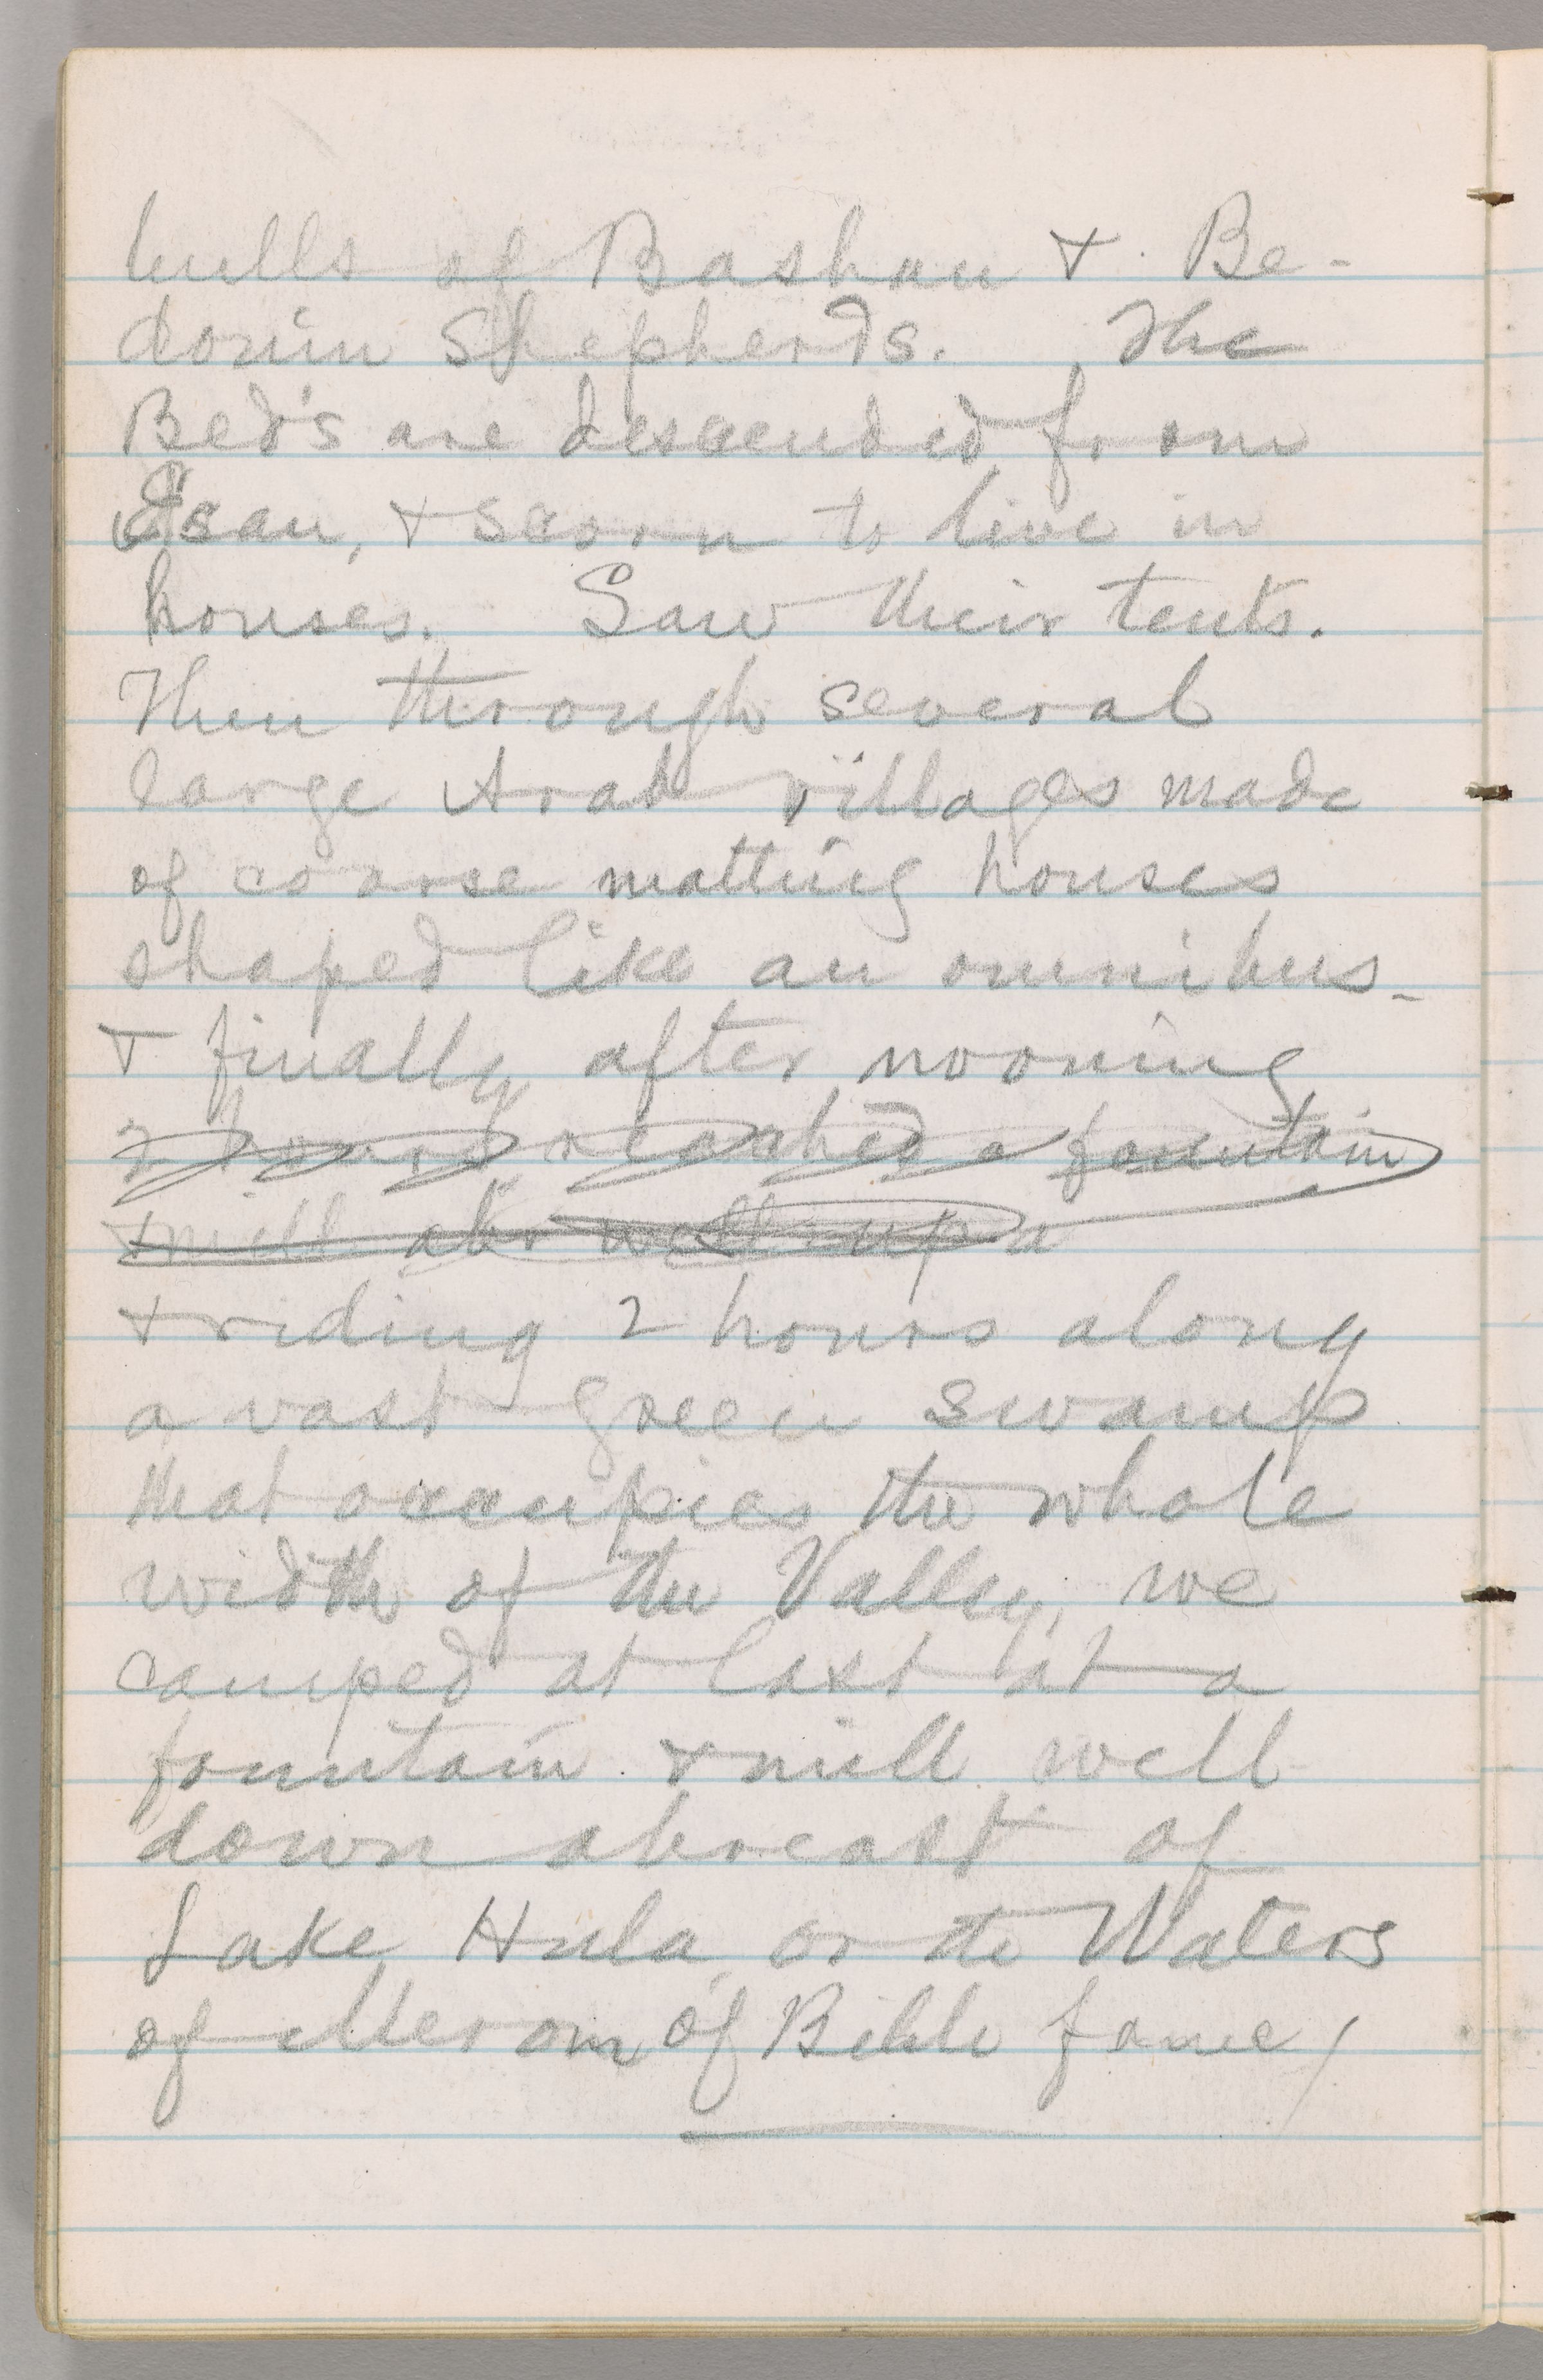 bulls of Bashan & Be-
douin Shepherds. The
Bed's are descended from
Esau, & scorn to live in
houses. Saw their tents.
Then through several
large Arab villages made
of coarse matting houses
shaped like an omnibus –
& finally, after nooning
2 hours reached a fountain
& mill abr well up a
& riding 2 hours along
a vast green swamp
that occupies the whole
width of the Valley, we
camped at last at a
fountain & mill well
down abreast of
Lake Hula, or the Waters
of Merom of Bible fame/